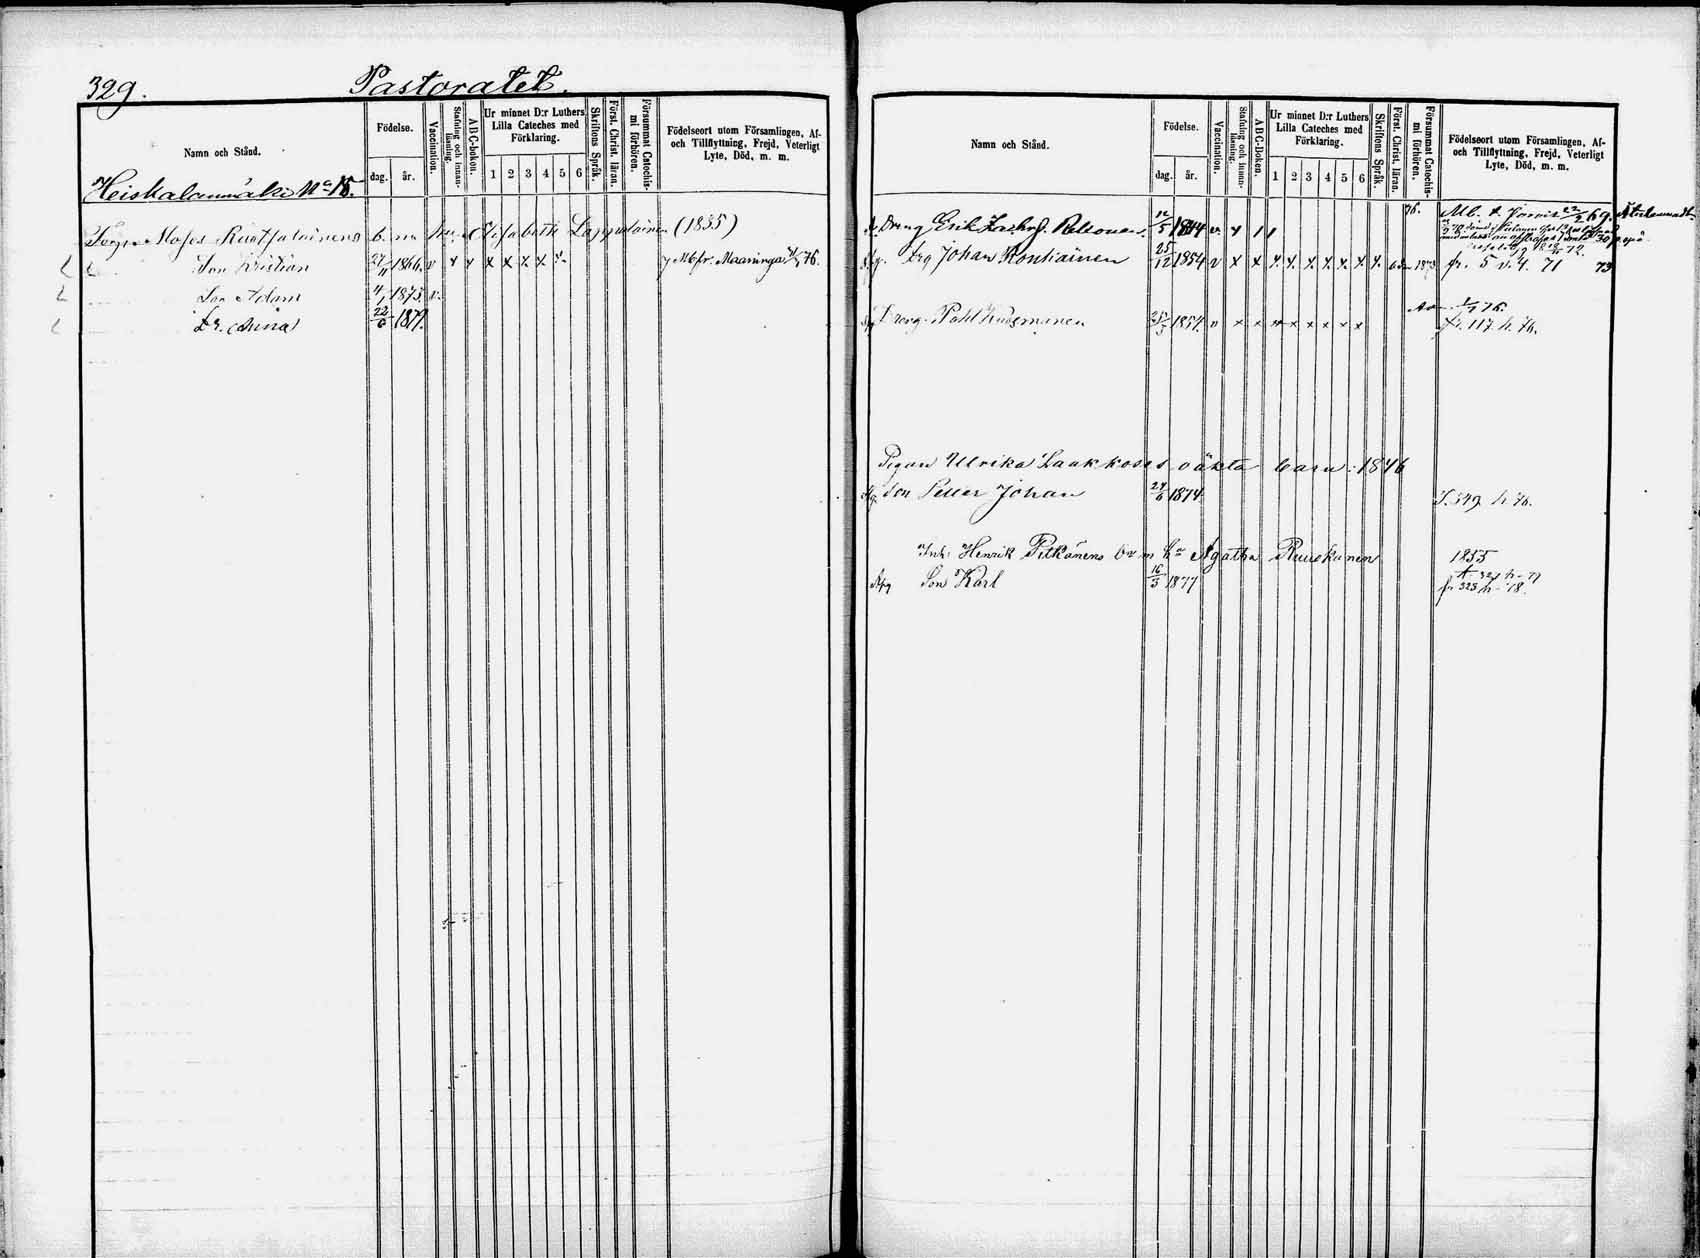 329. Pastoratet.
Namn och Stånd.
Födelse.
dag. år.
Vaccination.
Stafning och innanläsning.
ABC-boken.
Ur minnet D:r Luthers Lilla Cateches med Förklaring.
1 2 3 4 5 6
Skriftens Språk.
Först. Christ. läran.
Försummat Catechismi förhören.
Födelseort utom Församlingen, Af- och Tillflyttning, Frejd, Veterligt Lyte, Död, m. m.
Heiskalanmäki No 18.
Moses b. m. hu. Elisabeth Lappalainen (1835)
Son Kristian 27/11 1866. v x x x x x x Mfr. Maaninga 76.
Son Adam 4/1 1873 v.
Dr. Anna 22/6 1879.
Namn och Stånd.
Födelse.
dag. år.
Vaccination.
Stafning och innanläsning.
ABC-boken.
Ur minnet D:r Luthers Lilla Cateches med Förklaring.
1 2 3 4 5 6
Skriftens Språk.
Först. Christ. läran.
Försummat Catechismi förhören.
Födelseort utom Församlingen, Af- och Tillflyttning, Frejd, Veterligt Lyte, Död, m. m.
Dräng Erik 12/5 1844 v. x 1 1 76. 22/2 69.
Drg Johan Kontiainen 25/12 1854 v x x x x x x x x x 1873 fr. 5 v. 4. 71 73
Pohl 1854. v x x x x x x x x fr. 117. h. 76.
Pigan Ulrika Laakkoses oäkta barn: 1846
Son Petter Johan 24/6 1874 T. 549. h. 76.
Inh: Henrik Pitkänens b m ha Agatha Ruuskanen 1855
Son Karl 16/3 1877 fr 323 h - 78.